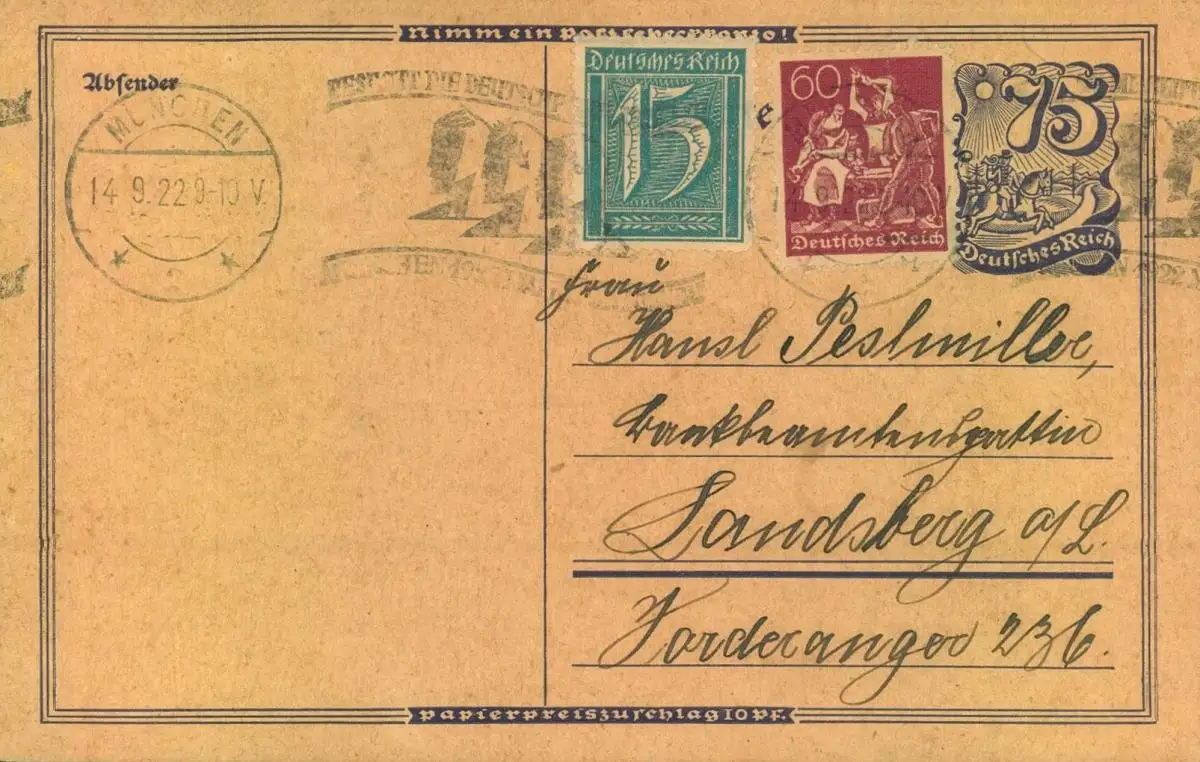 Nimm ein Postscheckkonto!
Absender
MÜNCHEN
14.9.22 9-10 V.
2
BESUCHT DIE DEUTSCHE
MÜNCHEN
Deutsches Reich
15
60
Deutsches Reich
75
Deutsches Reich
Frau
Hansl Peslmiller,
Bankbeamtensgattin
Landsberg a/L.
Vorderanger 236.
Papierpreiszuschlag 10 Pf.